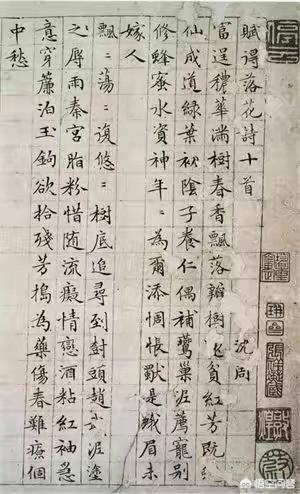 賦得落花詩十首
沈周
富逞穠華滿樹春香飄落瓣樹還貧紅芳既
仙成道綠葉初陰子養仁偶補鶯巢泥薦寵別
修蜂蜜水資神年〻為爾添惆悵獃是娥眉未
嫁人
飄〻蕩〻復悠〻樹底追尋到樹頭趙泥塗
之辱雨秦宮脂粉惜隨流癡情戀酒粘紅袖急
意穿簾泊玉鉤欲拾殘芳搗為藥傷春難療個
中愁
悟空问答